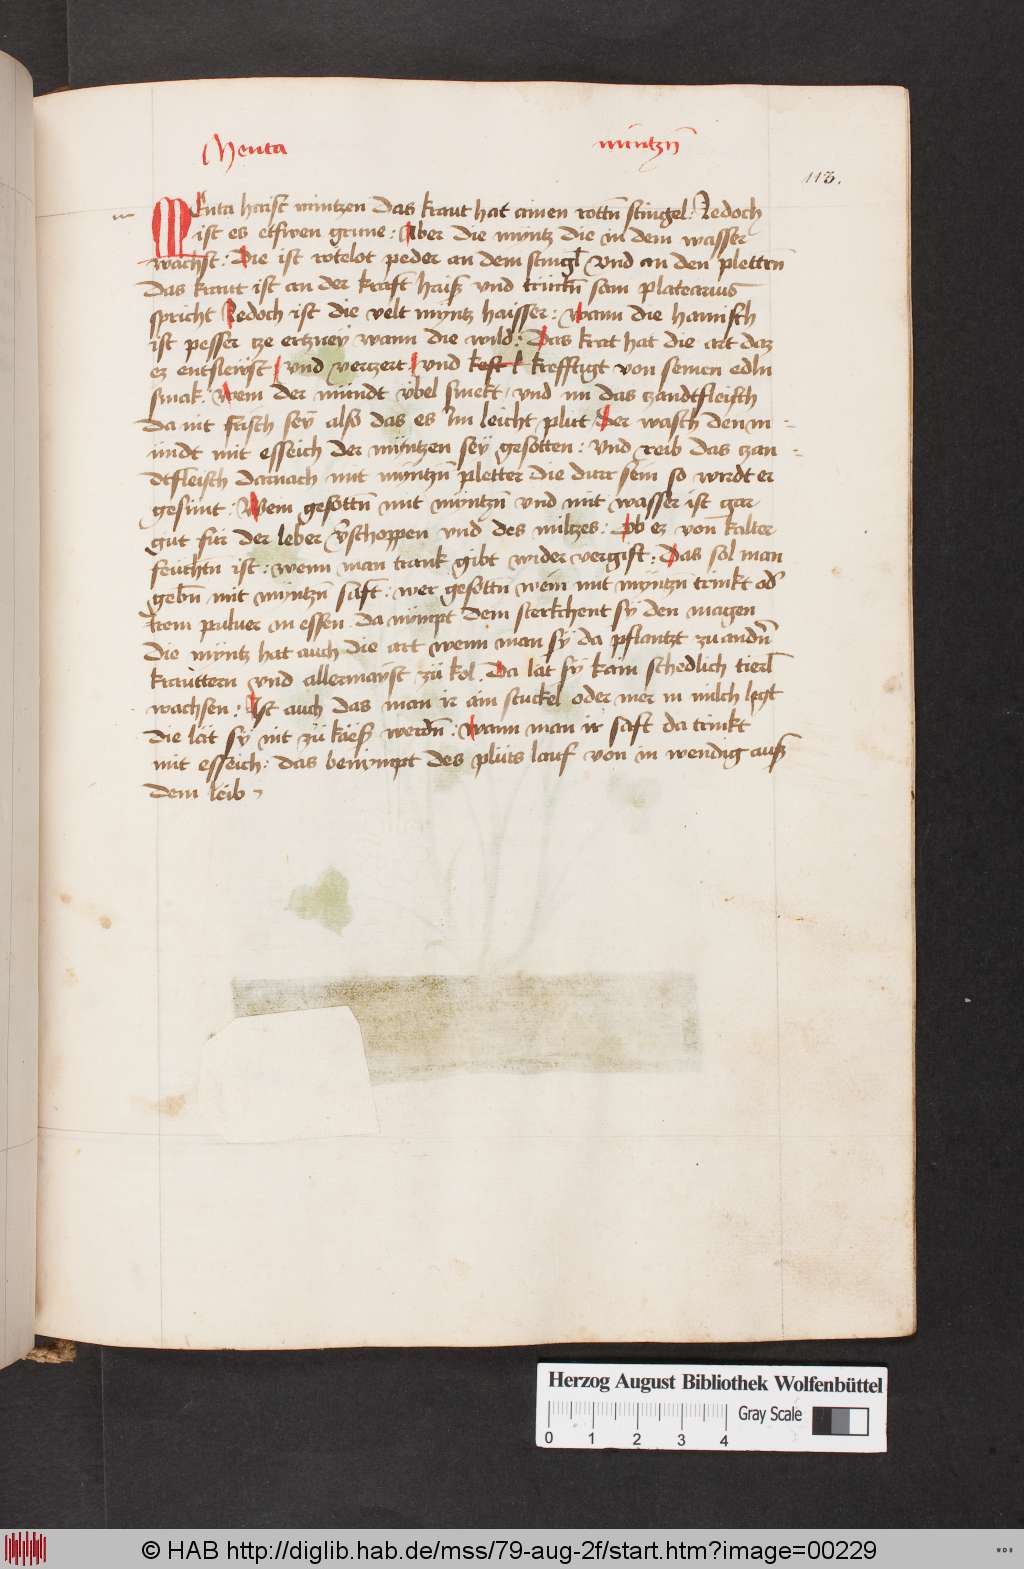 Menta müntzn̄
113.
MEnta haist müntzen Das kraut hat ainen rottn̄ stingel: Jedoch
ist es etswen grune: Aber die müntz die in dem wasser
wachst: Die ist rotelot peder an dem stingl̄ vnd an den plettrn̄
Das kraut ist an der kraft haiß vnd trückn̄ sam platearius
spricht Jedoch ist die velt müntz haisser: wann die hamisch
ist pesser tze ertzney wann die wild: Das krat hat die art daz
ez entsleüst vnd verzert vnd krefftigt von seinen edln
smak: Wem der mündt vbel smekt vnd im das zandtfleisch
Da nit frisch seÿ also das es Im leicht plüt der wasch den m=
ündt mit esseich der müntzen seÿ gesotten: Vnd reib das zan=
dtfleisch darnach mit müntzn̄ pletter die durr sein so wirdt er
gesunt: Wein gesottn̄ mit müntzn̄ vnd mit wasser ist gar
gut für der leber v̄schoppen vnd des miltzes: Ob ez von kalter
feüchtn̄ ist: wenn man trank gibt wider vergift: Das sol man
gebn̄ mit müntzn̄ saft: wer gesottn̄ wein mit müntzn̄ trinkt od̄
Irem puluer in essen da nÿmpt dem sterkchent sÿ den magen
Die müntz hat auch die art wenn man sÿ da pflantzt zu andn̄
krautern vnd allermaÿst zü kol Da lät sÿ kain schedlich tierl̄
wachsen: Ist auch das man ir ain stuckel oder mer in milch legt
die lät sÿ nit zü käeß werdn̄: Wann man ir saft da trinkt
mit esseich: das benÿmpt des plüts lauf von in wendig auß
dem leib
Herzog August Bibliothek Wolfenbüttel
Gray Scale
0 1 2 3 4
© HAB http://diglib.hab.de/mss/79-aug-2f/start.htm?image=00229